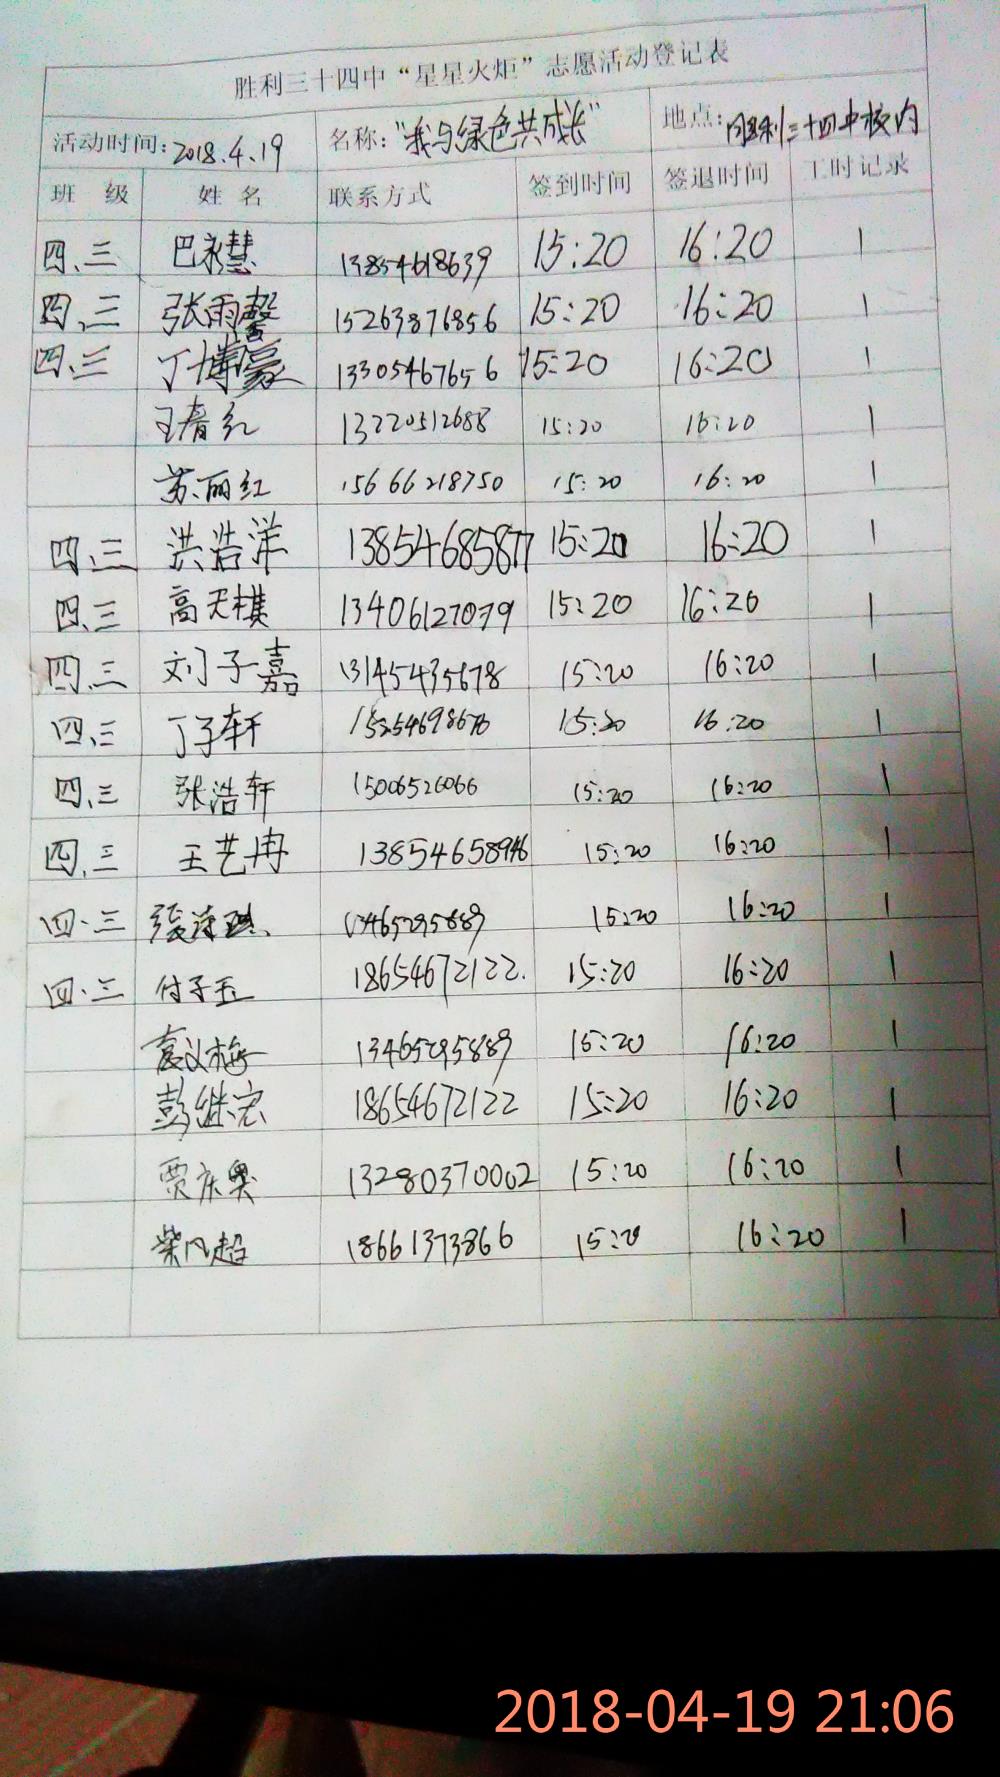 胜利三十四中“星星火炬”志愿活动登记表
活动时间:2018.4.19 名称:“我与绿色共成长” 地点:胜利三十四中校内
班 级 姓 名 联系方式 签到时间 签退时间 工时记录
四、三 巴永慧 13854618639 15:20 16:20 1
四、三 张雨馨 15263876856 15:20 16:20 1
四、三 丁博豪 13305467656 15:20 16:20 1
王春红 13220512688 15:20 16:20 1
苏丽红 15666218750 15:20 16:20 1
四、三 洪浩洋 13854685877 15:20 16:20 1
四、三 高天棋 13406127079 15:20 16:20 1
四、三 刘子嘉 13145435678 15:20 16:20 1
四、三 丁子轩 15254698676 15:20 16:20 1
四、三 张浩轩 15006526066 15:20 16:20 1
四、三 王艺冉 13854658946 15:20 16:20 1
四、三 13465295889 15:20 16:20 1
四、三 付子玉 18654672122. 15:20 16:20 1
袁义梅 13465295889 15:20 16:20 1
彭继宏 18654672122 15:20 16:20 1
贾庆奥 13280370002 15:20 16:20 1
柴凡超 18661373866 15:20 16:20 1
2018-04-19 21:06